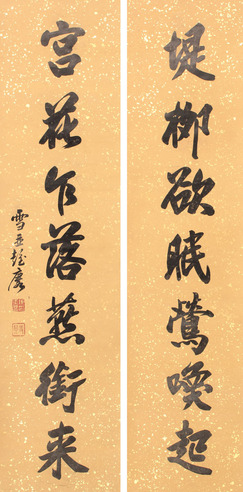 堤柳欲眠鶯喚起
宮花乍落燕銜来
雪亜彭慶